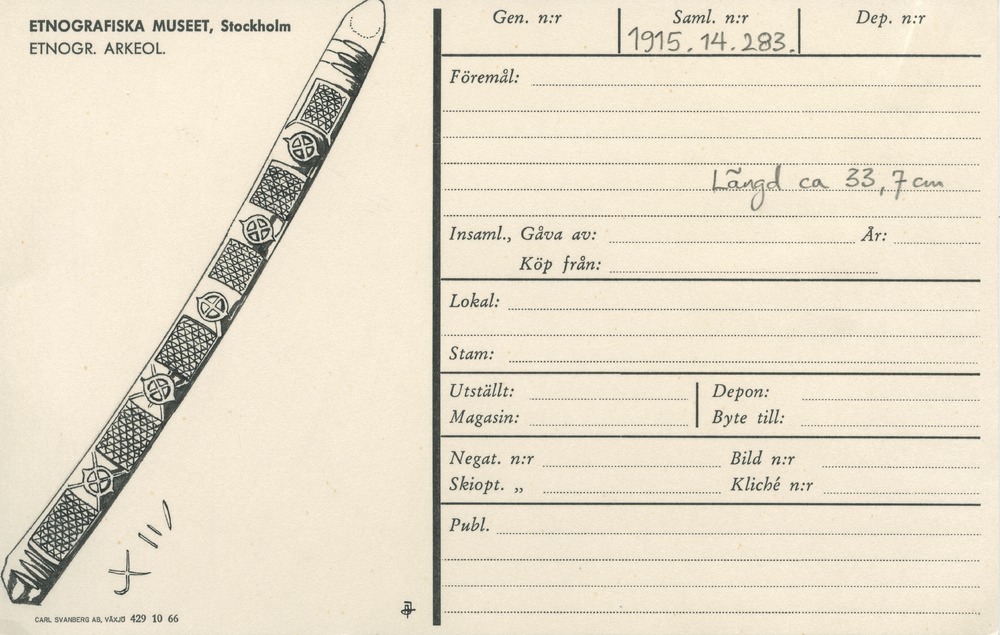 ETNOGRAFISKA MUSEET, Stockholm
ETNOGR. ARKEOL.
CARL SVANBERG AB, VÄXJÖ 429 10 66
Gen. n:r Saml. n:r Dep. n:r
1915.14.283.
Föremål:
Längd ca 33,7 cm
Insaml., Gåva av: År:
Köp från:
Lokal:
Stam:
Utställt: Depon:
Magasin: Byte till:
Negat. n:r Bild n:r
Skiopt. „ Kliché n:r
Publ.